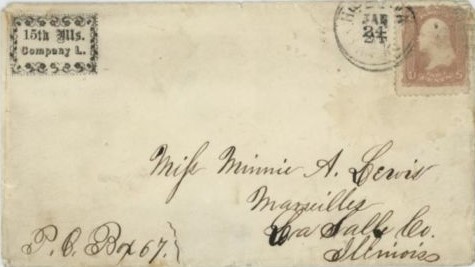 15th Ills.
Company L.
JAN
24
Miss Minnie A. Lewis
Marseilles
La Salle Co.
Illinois
P. O. Box 67.